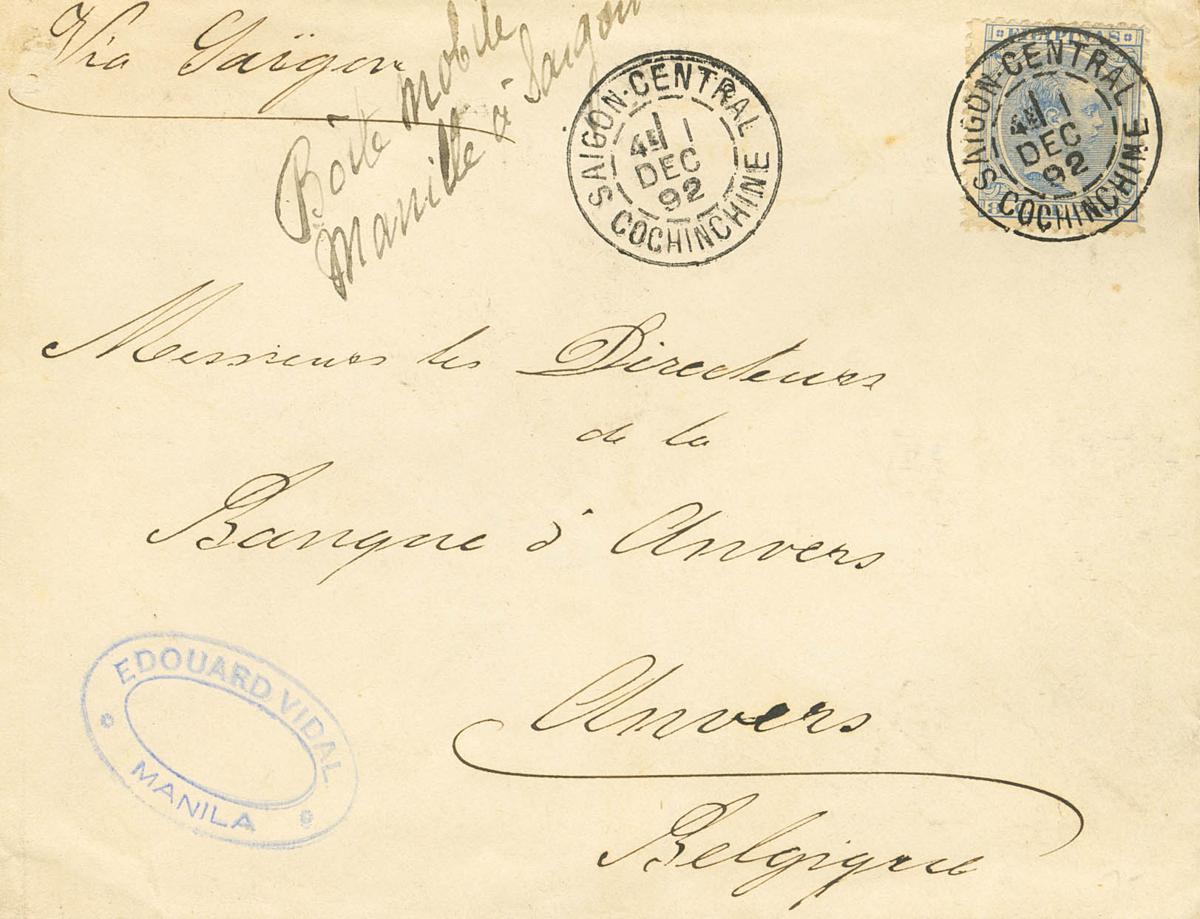 Via Saïgon
Boîte mobile
Manille à Saigon
SAIGON-CENTRAL
4E 1
DEC
92
COCHINCHINE
FILIPINAS
SAIGON-CENTRAL
4E 1
DEC
92
COCHINCHINE
Messieurs les Directeurs
de la
Banque d'Anvers
Anvers
Belgique
EDOUARD VIDAL
MANILA